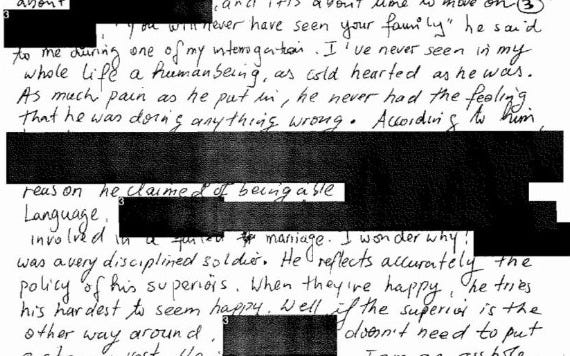 about , and it is about time to move on (3)
3 , "you will never have seen your family" he said
to me during one of my interrogation. I've never seen in my
whole life a humanbeing, as cold hearted as he was.
As much pain as he put in, he never had the feeling
that he was doing anything wrong. According to him,
reason he claimed of being able
Language. 3
involved in a failed marriage. I wonder why!
was a very disciplined soldier. He reflects accurately the
policy of his superiors. When they're happy, he tries
his hardest to seem happy. Well if the superior is the
other way around, 3 doesn't need to put